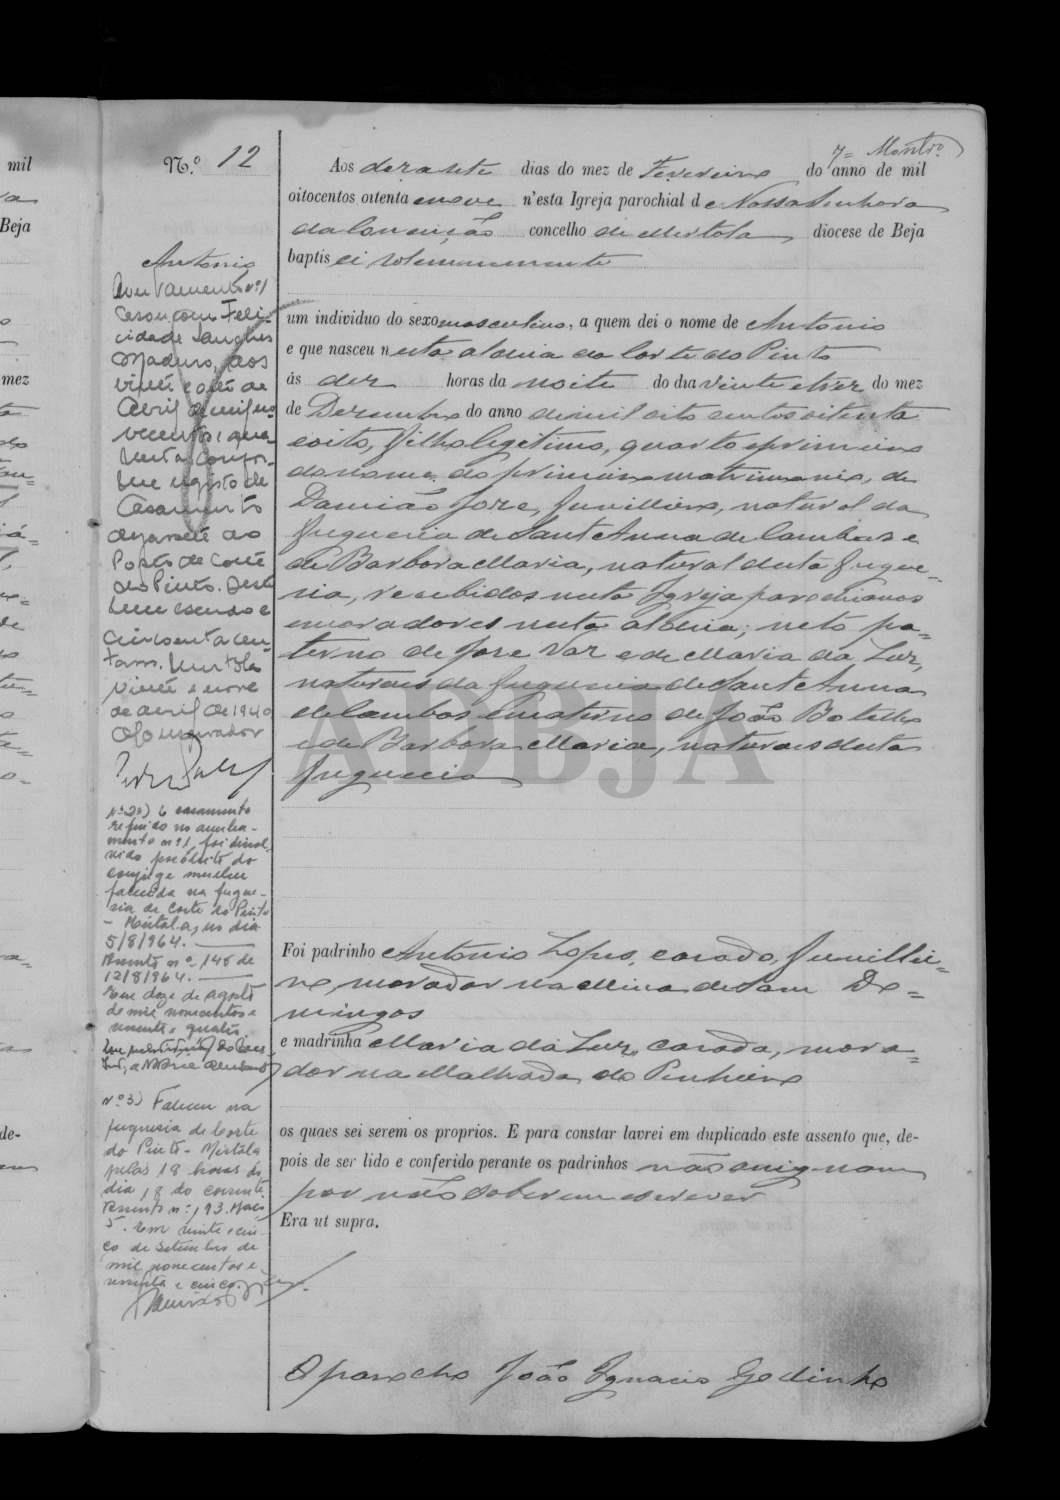 7= Montro
N.º 12
Antonio
Averbamento nº 1
Casou com Feli-
cidade Sanches
Maduro, aos
vinte e oito de
Abril de mil no-
vecentos e qua-
renta confor-
me registo de
Casamento
do Posto de Corte
do Pinto. Deste
um escudo e
cincoenta cen-
tavos. Mertola
vinte e nove
de abril de 1940
O Conservador
Nº 2º) O casamento
referido no averba-
mento nº 1, foi dissol-
vido por óbito do
conjuge mulher
falecida na fregue-
sia de Corte do Pinto
- Mértola, no dia
5/8/964.
Assento nº 145 de
12/8/964.
Em doze de agosto
de mil novecentos e
sessenta e quatro.
Nº 3) Faleceu na
freguesia de Corte
do Pinto - Mértola
pelas 18 horas do
dia 18 do corrente.
Assento nº 193. Maço
5. Em vinte e cin-
co de Setembro de
mil novecentos e
sessenta e cinco.
Aos dezasete dias do mez de Fevereiro do anno de mil
oitocentos oitenta e nove n'esta Igreja parochial de Nossa Senhora
da Conceição concelho de Mertola diocese de Beja
baptisei solemnemente
um individuo do sexo masculino, a quem dei o nome de Antonio
e que nasceu nesta aldeia da Corte do Pinto
ás dez horas da noite do dia vinte e trez do mez
de Dezembro do anno de mil oito centos oitenta
e oito, filho legitimo, quarto e primeiro
do nome, do primeiro matrimonio, de
Damião Joze, Jornalleiro, natural da
freguesia de Sant'Anna de Cambas e
de Barbora Maria, natural desta fregue-
sia, recebidos nesta Igreja parochianos
e moradores nesta aldeia; neto pa-
terno de Joze Vaz e de Maria da Luz,
naturaes da freguesia de Sant'Anna
de Cambas e materno de João Botelho
e de Barbora Maria, naturaes desta
freguesia
ADBJA
Foi padrinho Antonio Lopes, casado, Jornallei-
ro, morador na Mina de Sam Do-
mingos
e madrinha Maria da Luz, casada, mora-
dora na Malhada do Pinheiro
os quaes sei serem os proprios. E para constar lavrei em duplicado este assento que, de-
pois de ser lido e conferido perante os padrinhos não assignam
por não saberem escrever
Era ut supra.
O parocho João Ignacio Godinho
mil
Beja
mez
de-